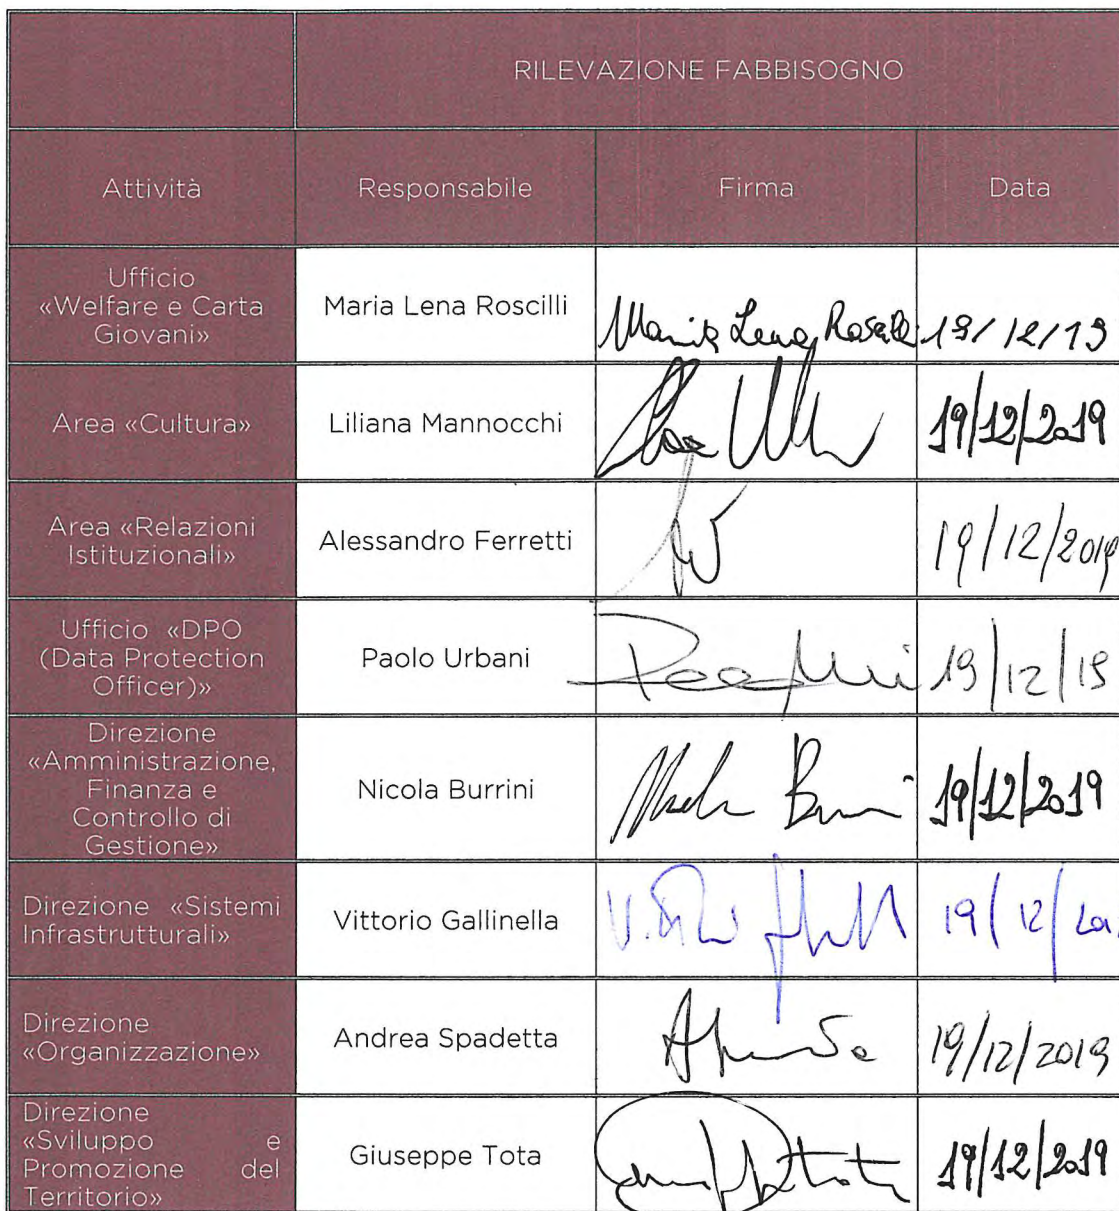 RILEVAZIONE FABBISOGNO
Attività Responsabile Firma Data
Ufficio
«Welfare e Carta
Giovani»
Maria Lena Roscilli
Maria Lena 19/12/19
Area «Cultura»
Liliana Mannocchi
19/12/2019
Area «Relazioni
Istituzionali»
Alessandro Ferretti
19/12/2019
Ufficio «DPO
(Data Protection
Officer)»
Paolo Urbani
19/12/19
Direzione
«Amministrazione,
Finanza e
Controllo di
Gestione»
Nicola Burrini
19/12/2019
Direzione «Sistemi
Infrastrutturali»
Vittorio Gallinella
19/12/201
Direzione
«Organizzazione»
Andrea Spadetta
19/12/2019
Direzione
«Sviluppo e
Promozione del
Territorio»
Giuseppe Tota
19/12/2019